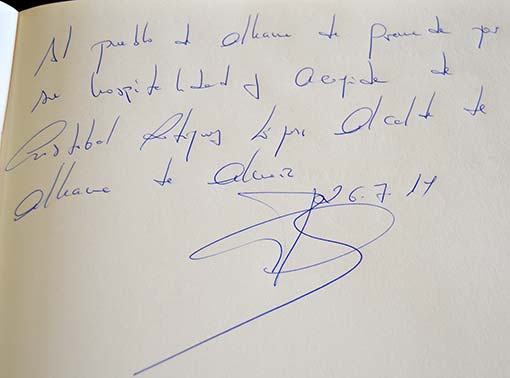 Al pueblo de Alhama de Granada por
su hospitalidad y acogida de
Cristobal Rodriguez López Alcalde de
Alhama de Almeria
26.7.14